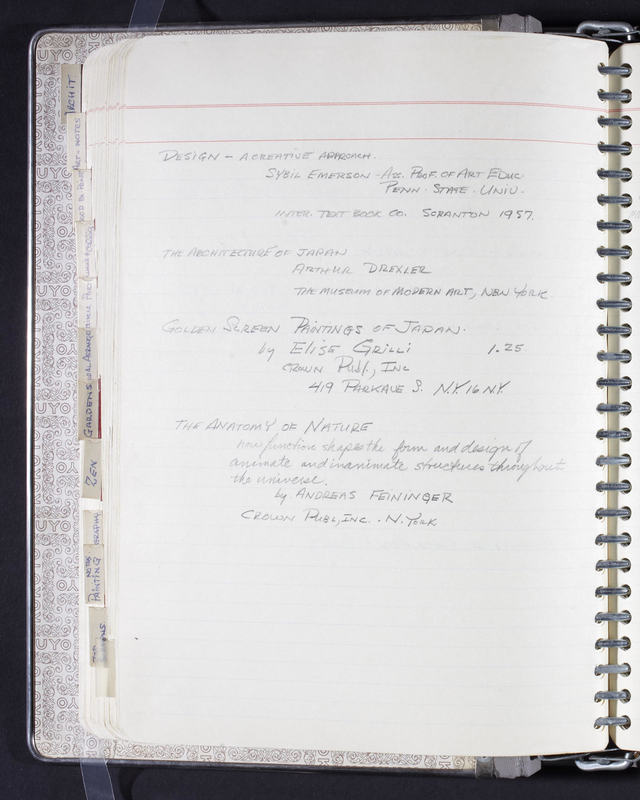 DESIGN – A CREATIVE APPROACH.
SYBIL EMERSON – ASS. PROF. OF ART EDUC.
PENN. STATE. UNIV.
INTER. TEXT BOOK CO. SCRANTON 1957.
THE ARCHITECTURE OF JAPAN
ARTHUR DREXLER
THE MUSEUM OF MODERN ART, NEW YORK.
GOLDEN SCREEN PAINTINGS OF JAPAN.
by ELISE GRILLI 1.25
CROWN Publ., INC
419 PARK AVE S. N.Y. 16 N.Y.
THE ANATOMY OF NATURE
how function shapes the form and design of
animate and inanimate structures throughout
the universe.
by ANDREAS FEININGER
CROWN PUBL, INC. . N. YORK
ARCHIT
ART - NOTES
GARDENS
ZEN
NOTES
PAINTING